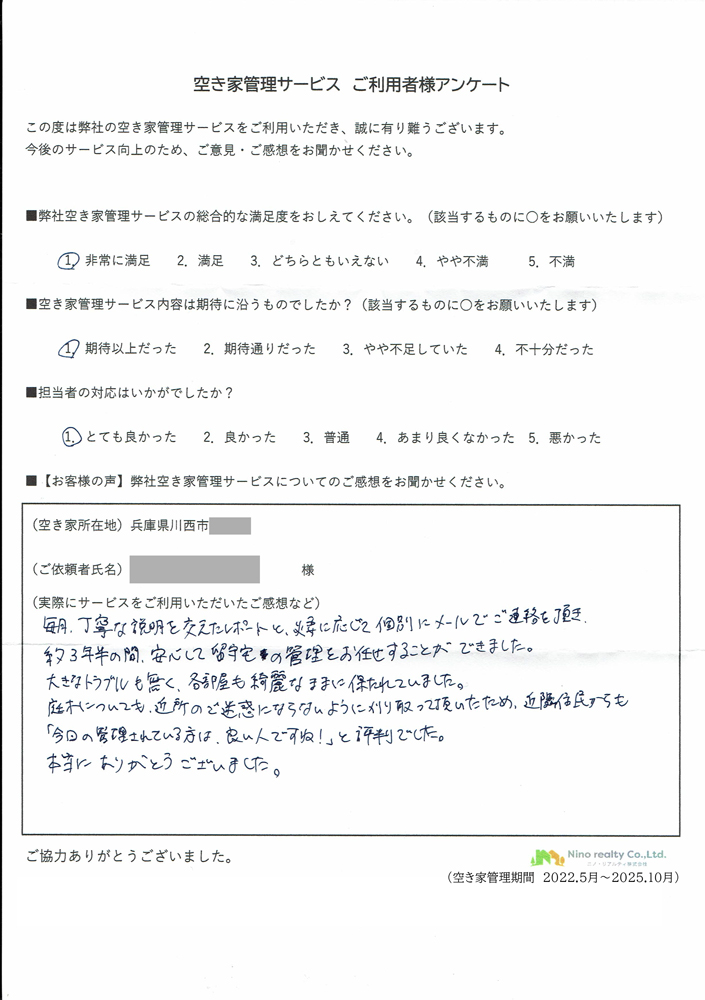 空き家管理サービス ご利用者様アンケート
この度は弊社の空き家管理サービスをご利用いただき、誠に有り難うございます。
今後のサービス向上のため、ご意見・ご感想をお聞かせください。
■弊社空き家管理サービスの総合的な満足度をおしえてください。（該当するものに○をお願いいたします）
1. 非常に満足 2. 満足 3. どちらともいえない 4. やや不満 5. 不満
■空き家管理サービス内容は期待に沿うものでしたか？（該当するものに○をお願いいたします）
1. 期待以上だった 2. 期待通りだった 3. やや不足していた 4. 不十分だった
■担当者の対応はいかがでしたか？
1. とても良かった 2. 良かった 3. 普通 4. あまり良くなかった 5. 悪かった
■【お客様の声】弊社空き家管理サービスについてのご感想をお聞かせください。
（空き家所在地）兵庫県川西市
（ご依頼者氏名） 様
（実際にサービスをご利用いただいたご感想など）
毎月、丁寧な説明を交えたレポートと、必要に応じて個別にメールでご連絡を頂き、
約3年半の間、安心して留守宅の管理をお任せすることができました。
大きなトラブルも無く、各部屋も綺麗なままに保たれていました。
庭木についても、近所のご迷惑にならないように刈り取って頂いたため、近隣住民からも
「今回の管理されている方は、良い人ですね!」と評判でした。
本当にありがとうございました。
ご協力ありがとうございました。
Nino realty Co.,Ltd.
ニノ・リアルティ株式会社
（空き家管理期間 2022.5月～2025.10月）